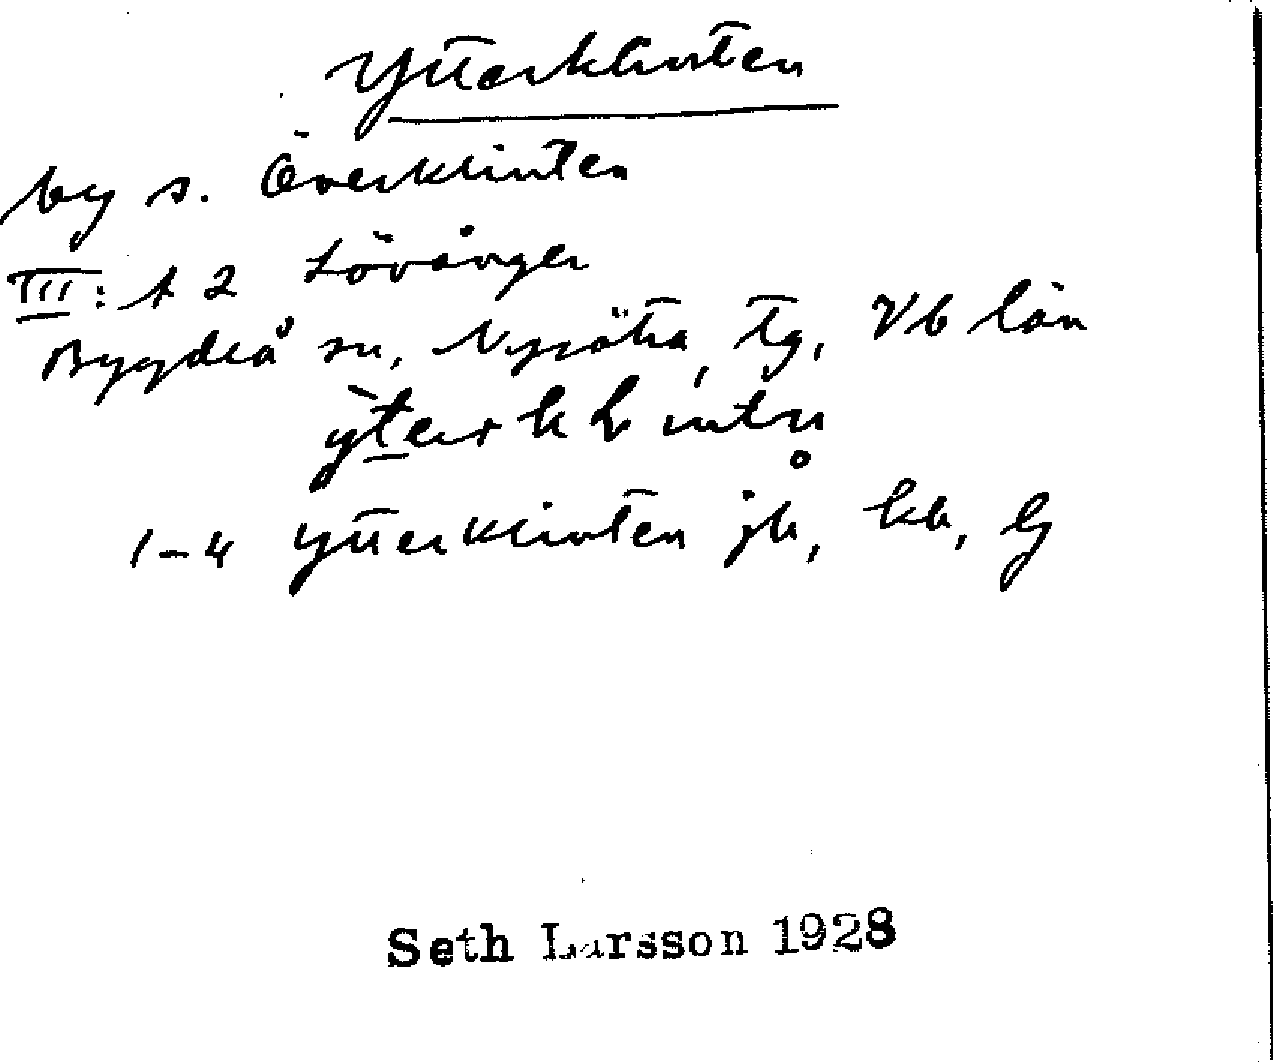 Ytterklinten
by s. Överklinten
III: A 2 Lövånger
Bygdeå sn, Nysätra tg, Vb län
1-4 Ytterklinten jb, kb, lj
Seth Larsson 1928